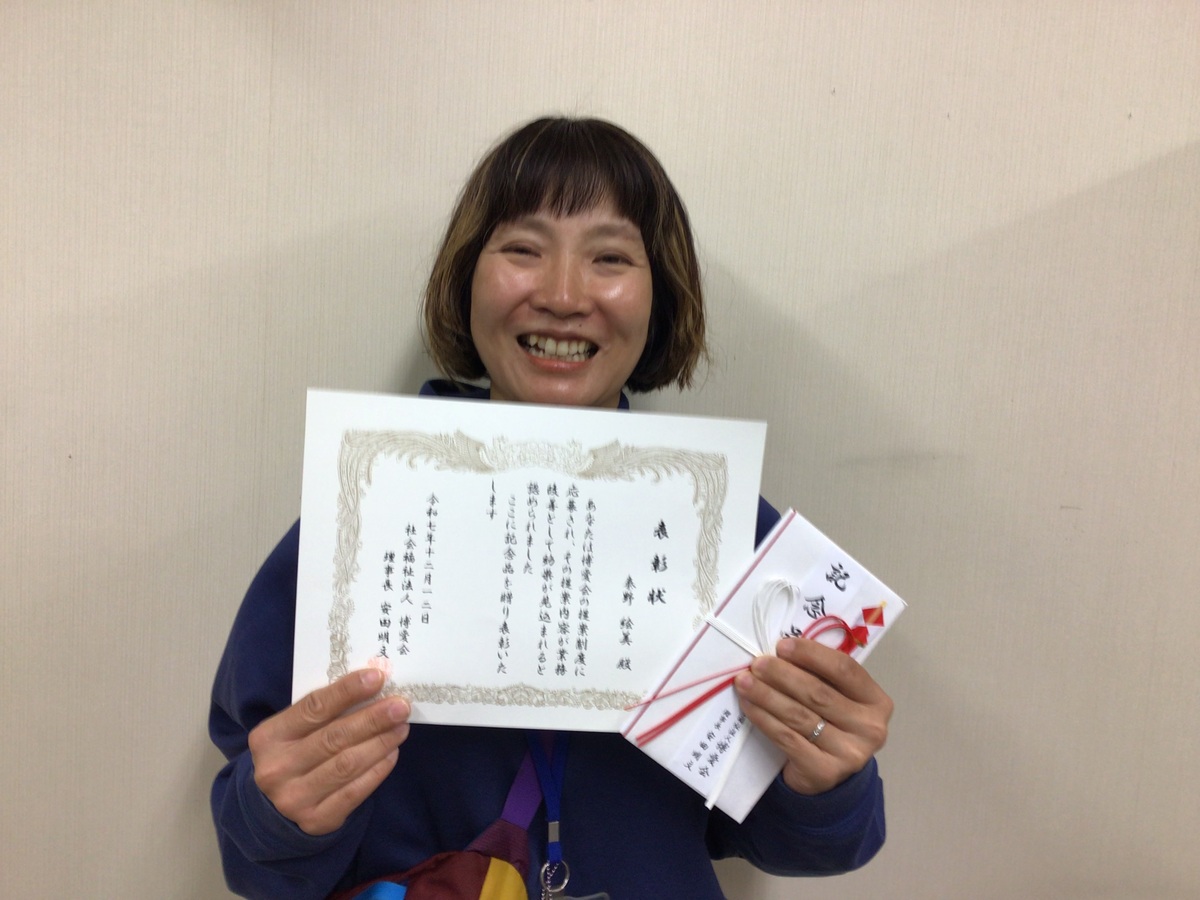 表彰状
秦野 絵美 殿
あなたは博愛会の提案制度に
応募され、その提案内容が業務
改善として効果が見込まれると
認められました
ここに記念品を贈り表彰いた
します
令和七年十二月一二日
社会福祉法人 博愛会
理事長 安田明文
記念
博愛会
理事長 安田明文